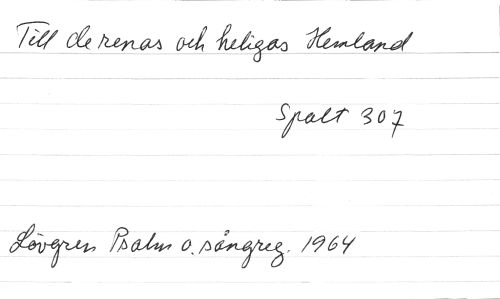 Till de renas och heligas Hemland
Spalt 307
Lövgren Psalm o. sångreg. 1964